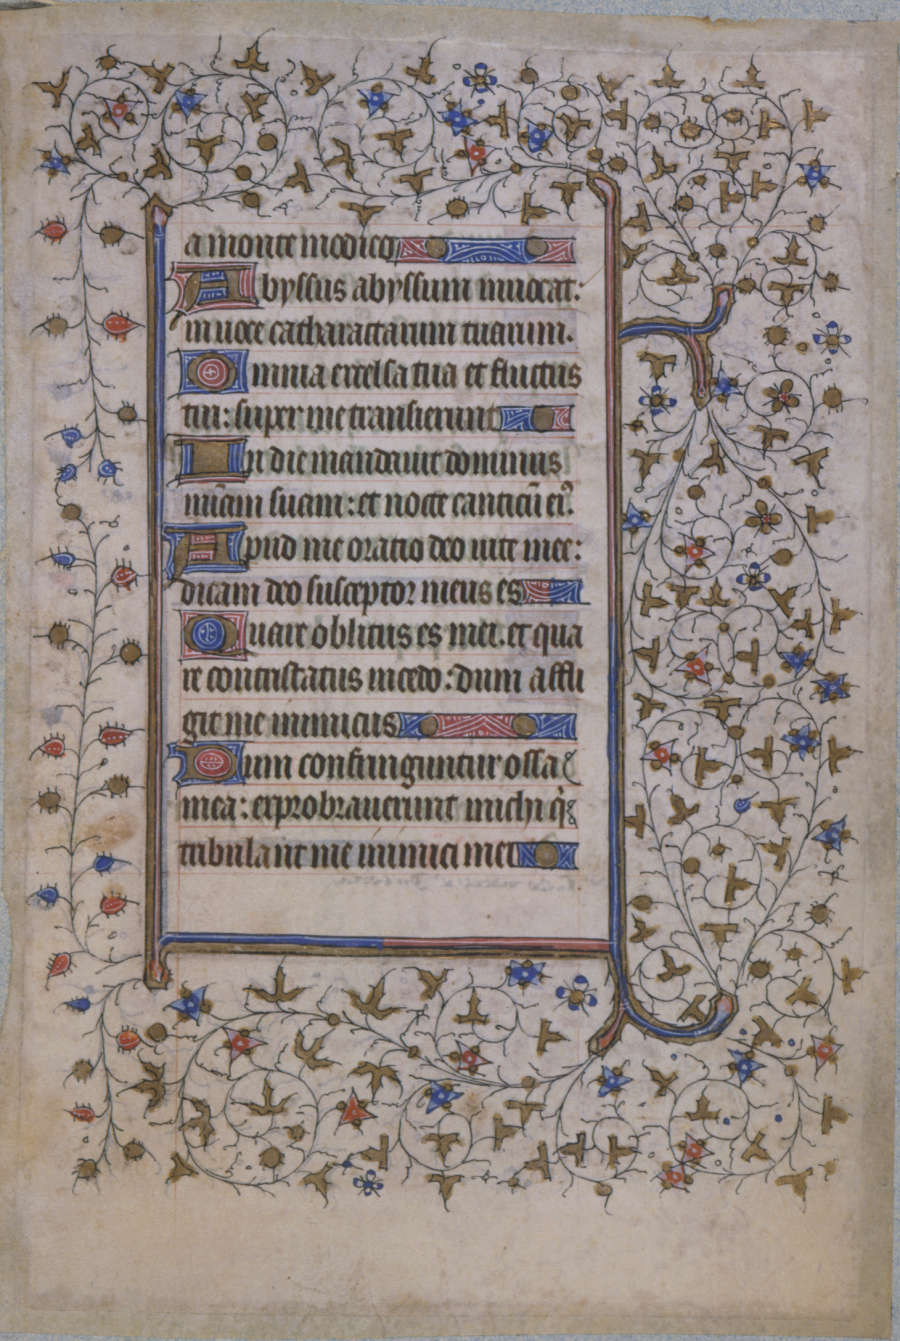 a monte modico
Abyssus abyssum inuocat:
in uoce catharactarum tuarum.
Omnia excelsa tua et fluctus
tui: super me transierunt
In die mandauit dominus
mĩam suam: et nocte canticũ eiꝰ.
Apud me oratio deo uite mee:
dicam deo susceptor meus es
Quare oblitus es mei. et qua
re contristatus incedo: dum affli
git me inimicus
Dum confringuntur ossa
mea: exprobrauerunt michi q̃
tribulant me inimici mei